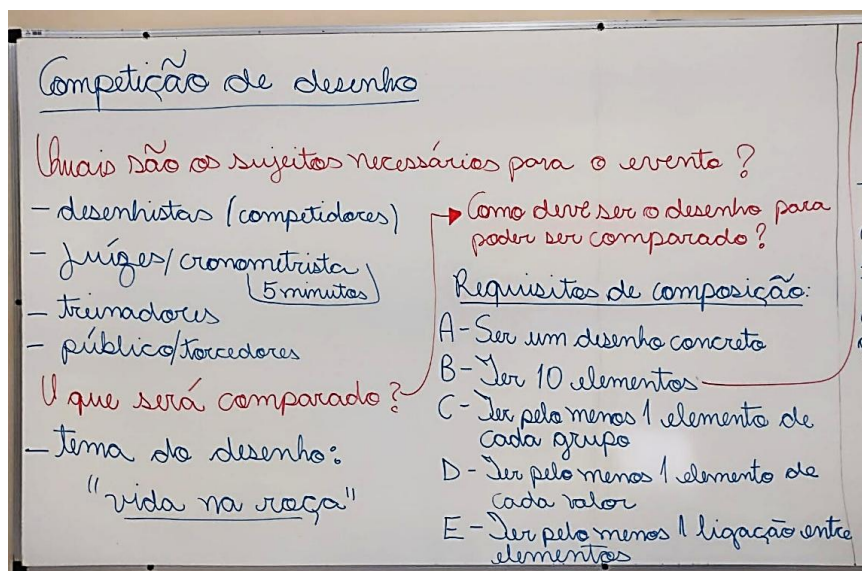 Competição de desenho
Quais são os sujeitos necessários para o evento?
- desenhistas (competidores)
- Juízes/cronometrista
5 minutos
- treinadores
- público/torcedores
O que será comparado?
- tema do desenho:
"vida na roça"
Como deve ser o desenho para
poder ser comparado?
Requisitos de composição:
A - Ser um desenho concreto
B - Ter 10 elementos
C - Ter pelo menos 1 elemento de
cada grupo
D - Ter pelo menos 1 elemento de
cada valor
E - Ter pelo menos 1 ligação entre
elementos